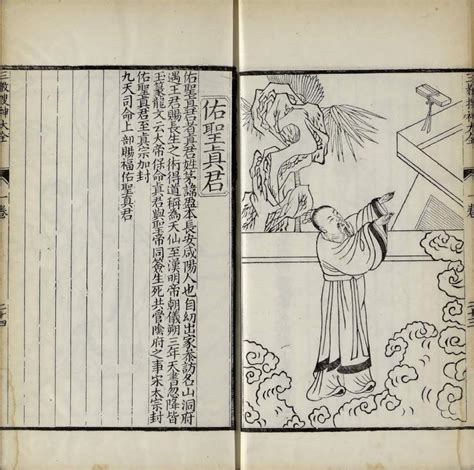 佑聖真君
佑聖真君者真君姓茅諱盈本長安咸陽人也自幼出家叅訪名山洞府
遇王君賜長生之術得道稱為天仙至漢明帝朝儀朔三年天書忽降皆
玉篆龍文云大帝保命真君與聖帝同簽生死共管陰府之事宋太宗封
佑聖真君至真宗加封
九天司命上卿賜福佑聖真君
三教搜神大全
一卷
二十四